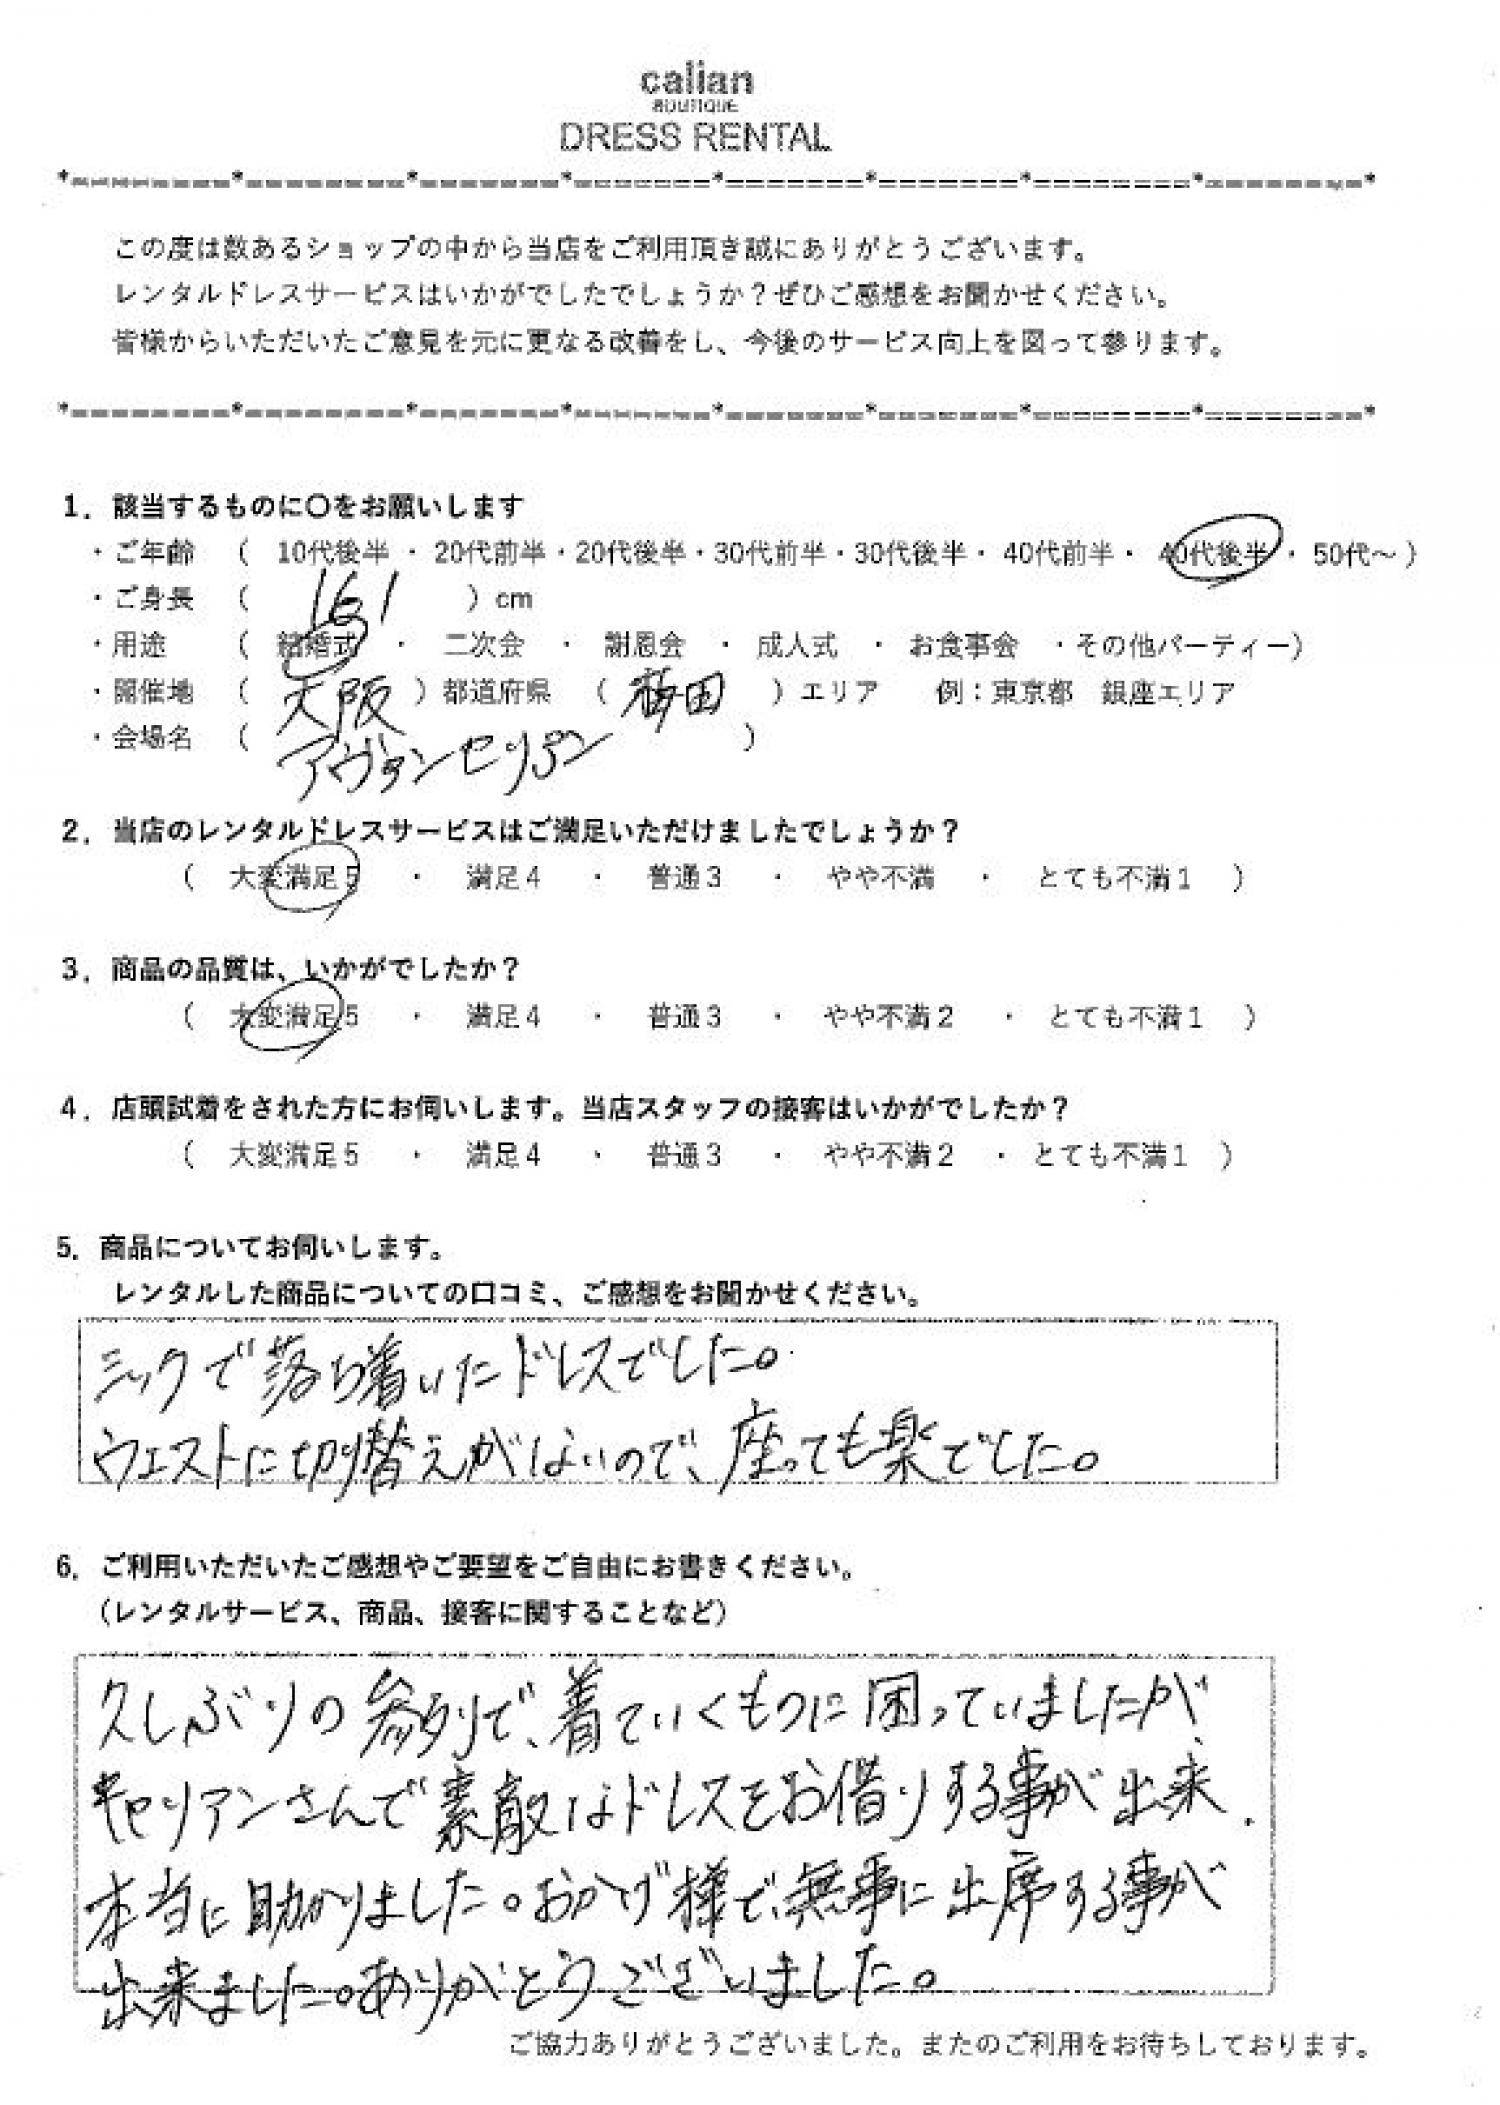 calian
BOUTIQUE
DRESS RENTAL
*---------*---------*--------*=======*========*========*=========*---------*
この度は数あるショップの中から当店をご利用頂き誠にありがとうございます。
レンタルドレスサービスはいかがでしたでしょうか？ぜひご感想をお聞かせください。
皆様からいただいたご意見を元に更なる改善をし、今後のサービス向上を図って参ります。
*---------*---------*--------*--------*--------*--------*=========*=========*
1．該当するものに〇をお願いします
・ご年齢 （ 10代後半 ・ 20代前半・20代後半・30代前半・30代後半・ 40代前半・ 40代後半 ・ 50代～ ）
・ご身長 （ 161 ）cm
・用途 （ 結婚式 ・ 二次会 ・ 謝恩会 ・ 成人式 ・ お食事会 ・その他パーティー）
・開催地 （ 大阪 ）都道府県 （ 梅田 ）エリア 例：東京都 銀座エリア
・会場名 （ アヴァンセリアン ）
2．当店のレンタルドレスサービスはご満足いただけましたでしょうか？
（ 大変満足5 ・ 満足4 ・ 普通3 ・ やや不満 ・ とても不満1 ）
3．商品の品質は、いかがでしたか？
（ 大変満足5 ・ 満足4 ・ 普通3 ・ やや不満2 ・ とても不満1 ）
4．店頭試着をされた方にお伺いします。当店スタッフの接客はいかがでしたか？
（ 大変満足5 ・ 満足4 ・ 普通3 ・ やや不満2 ・ とても不満1 ）
5．商品についてお伺いします。
レンタルした商品についての口コミ、ご感想をお聞かせください。
シックで落ち着いたドレスでした。
ウエストに切り替えがないので、座っても楽でした。
6．ご利用いただいたご感想やご要望をご自由にお書きください。
（レンタルサービス、商品、接客に関することなど）
久しぶりの参列で、着ていくものに困っていましたが、
キャリアンさんで素敵なドレスをお借りする事が出来、
本当に助かりました。おかげ様で、無事に出席する事が
出来ました。ありがとうございました。
ご協力ありがとうございました。またのご利用をお待ちしております。